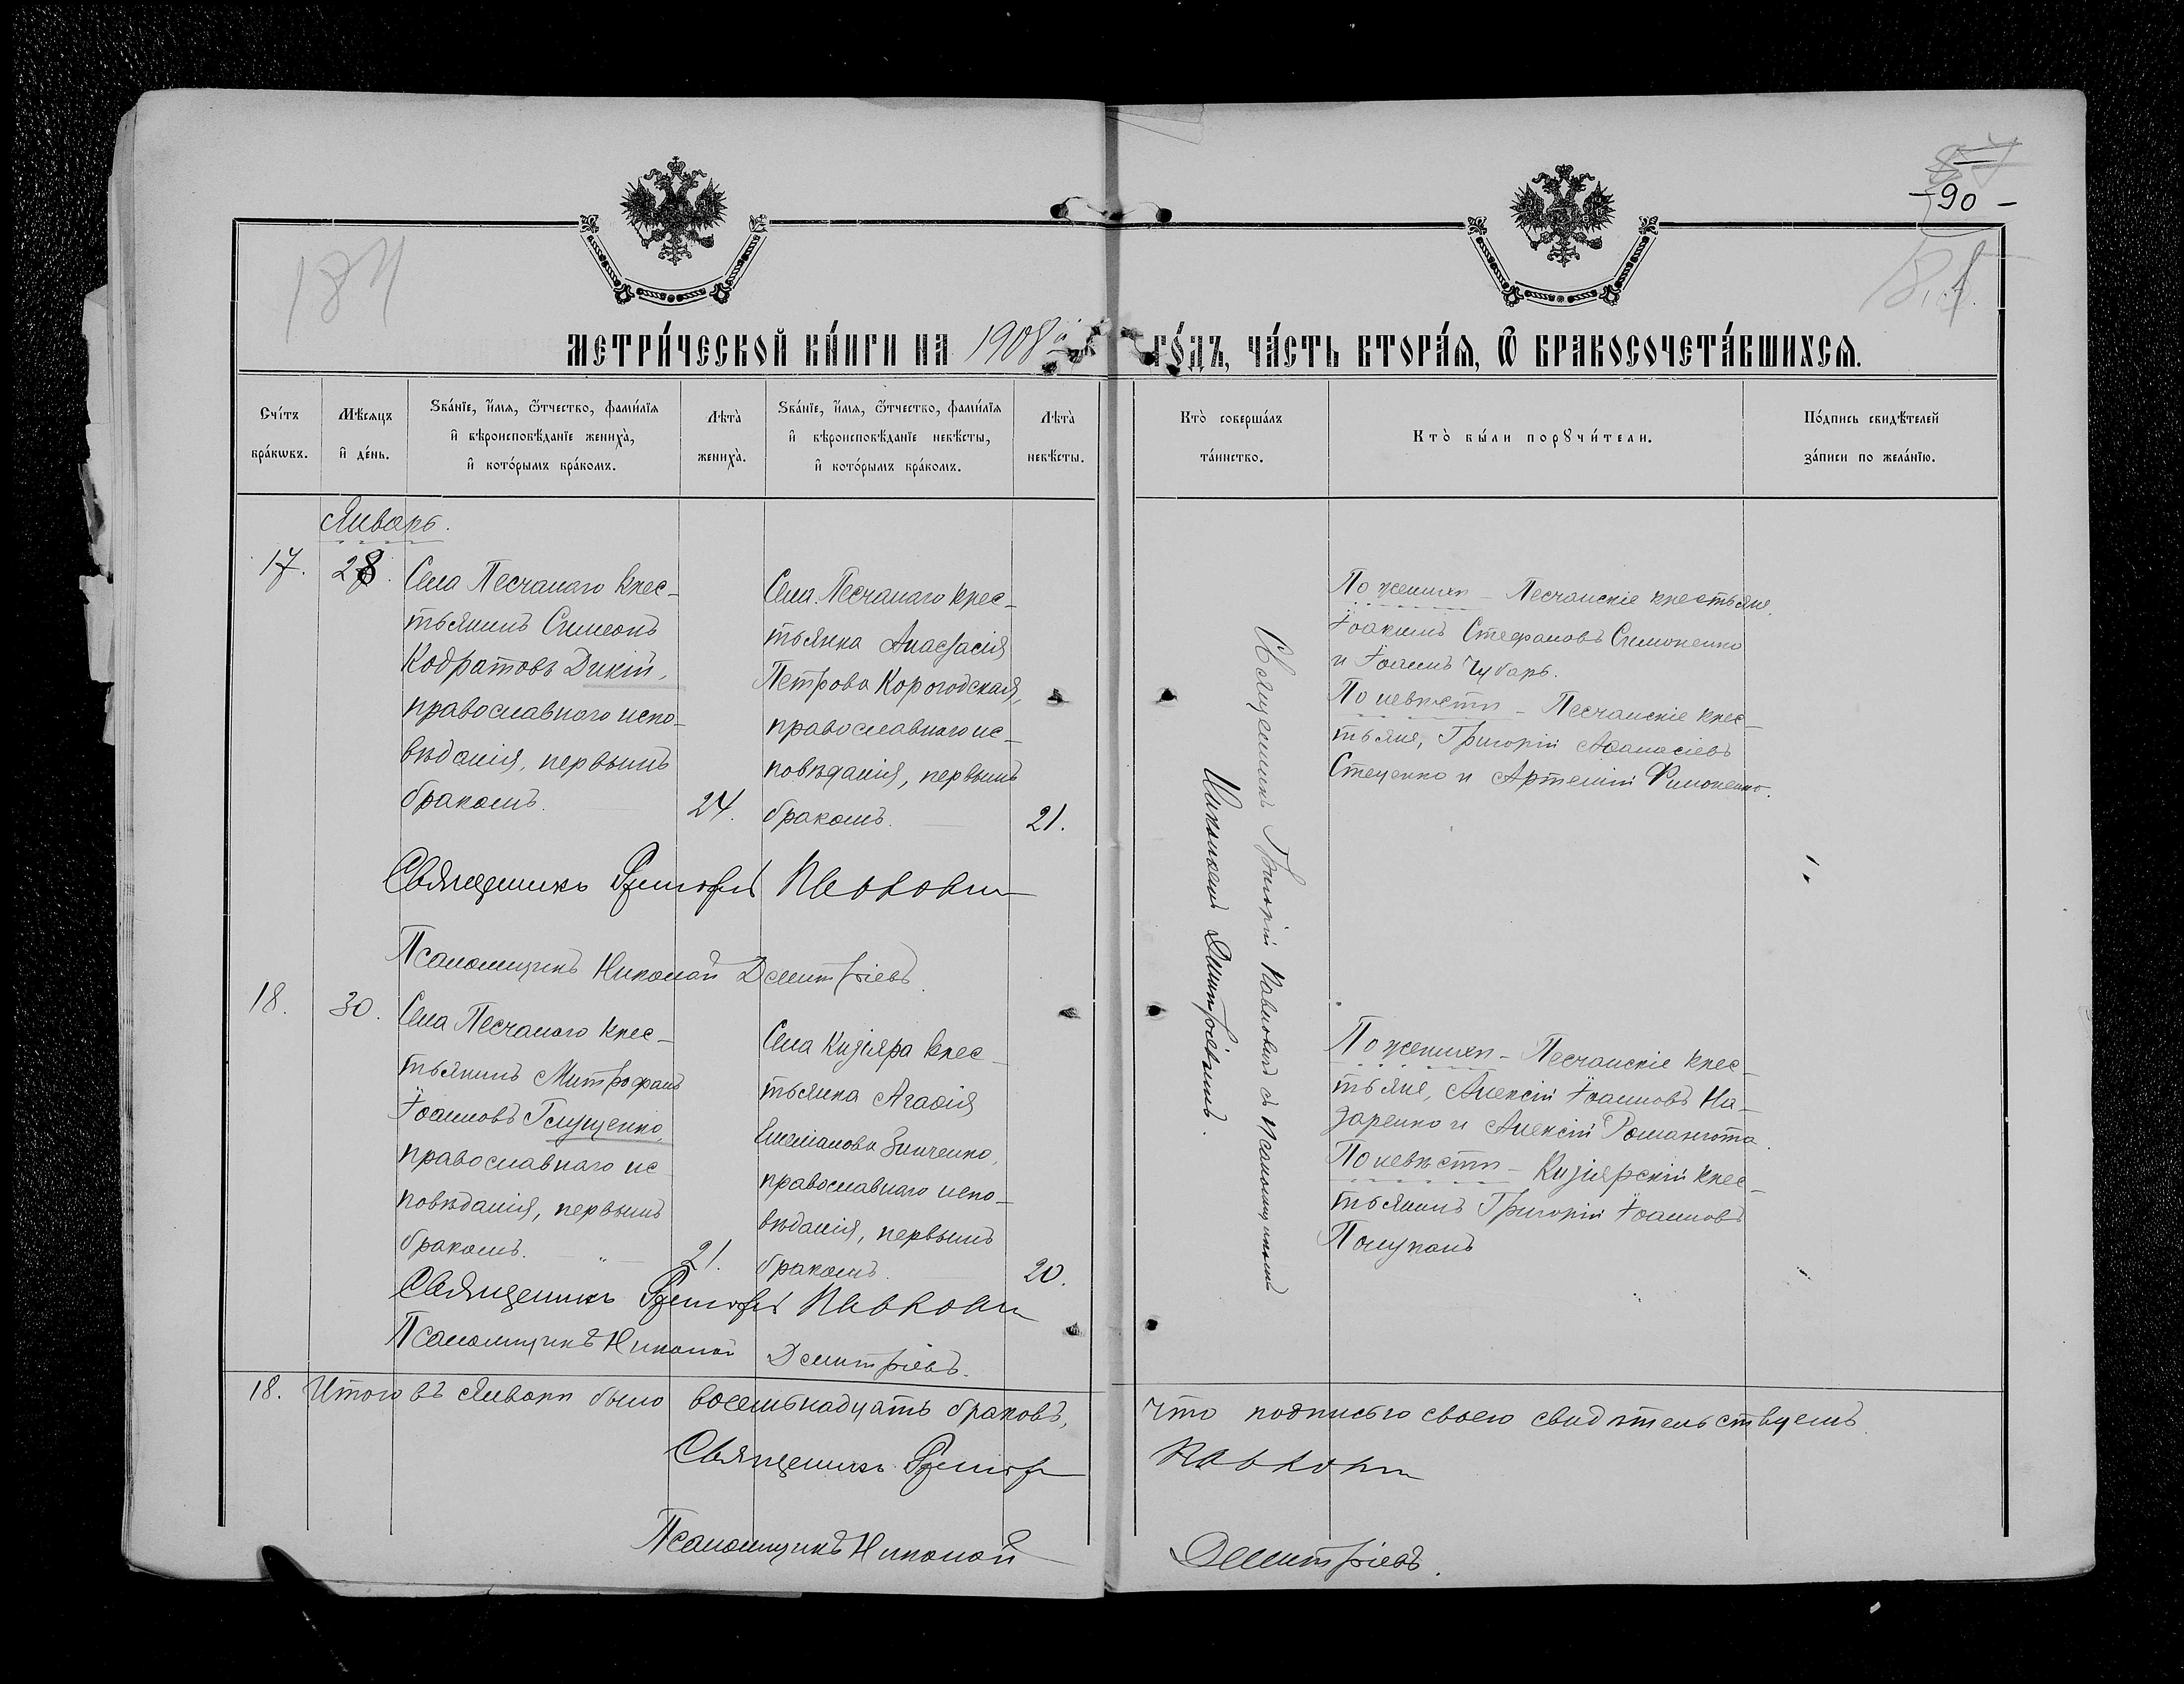 -90-
184
МЕТРИ́ЧЕСКОЙ КНИ́ГИ НА 1908й ГО́ДЪ, ЧА́СТЬ ВТОРА́Я, Ѡ БРАКОСОЧЕТА́ВШИХСЯ.
Сче́тъ бра́кѡвъ.
Мѣ́сяцъ и де́нь.
Зва́нїе, и́мя, ѻ́тчество, фами́лїя и вѣроисповѣ́данїе жениха̀, и кото́рымъ бра́комъ.
Лѣта̀ жениха̀.
Зва́нїе, и́мя, ѻ́тчество, фами́лїя и вѣроисповѣ́данїе невѣ́сты, и кото́рымъ бра́комъ.
Лѣта̀ невѣ́сты.
Кто̀ соверша́лъ та́инство.
Кто̀ бы́ли порꙋчи́тели.
По́дпись свидѣ́телей за́писи по жела́нїю.
Январь.
17. 28.
Села Песчанаго крес-
тьянинъ Симеонъ
Кодратовъ Дикій,
православнаго испо-
вѣданія, первымъ
бракомъ. 24.
Села Песчанаго крес-
тьянка Анастасія
Петрова Корогодская,
православнаго ис-
повѣданія, первымъ
бракомъ. 21.
Священникъ Григорій Павловичъ съ псаломщикомъ
Николаемъ Димитріевымъ.
По женихѣ - Песчанскіе крестьяне
Іоакимъ Стефановъ Симоненко
и Іоаннъ Чубарь.
По невѣстѣ - Песчанскіе крес-
тьяне, Григорій Аѳанасіевъ
Стеценко и Артемій Филоненко.
Священникъ Григорій Павловичъ
Псаломщикъ Николай Димитріевъ.
18. 30.
Села Песчанаго крес-
тьянинъ Митрофанъ
Іоанновъ Глущенко,
православнаго ис
повѣданія, первымъ
бракомъ. 21.
Села Кизіяра крес-
тьянка Агаѳія
Емеліанова Зинченко,
православнаго испо-
вѣданія, первымъ
бракомъ. 20.
По женихѣ - Песчанскіе крес-
тьяне, Алексій Іоанновъ На-
заренко и Алексій Романюта.
По невѣстѣ - Кизіярскій крес-
тьянинъ Григорій Іоанновъ
Полупанъ
Священникъ Григорій Павловичъ
Псаломщикъ Николай Димитріевъ.
18. Итого въ Январѣ было восемьнадцать браковъ, что подписью своею свидѣтельствуемъ.
Священникъ Григорій Павловичъ
Псаломщикъ Николай Димитріевъ.